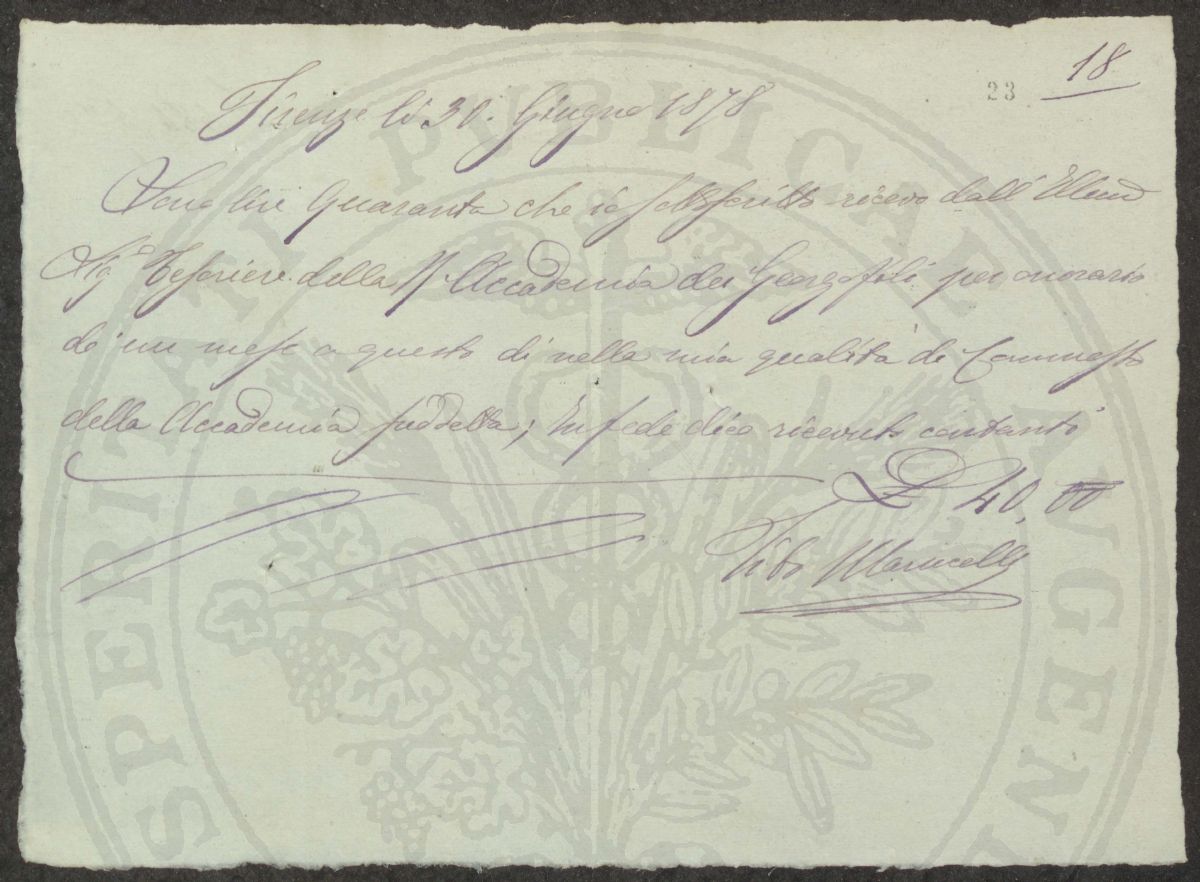 18
23
Firenze li 30. Giugno 1878
Sono lire Quaranta che io sottoscritto ricevo dall' Illmo
Sigr Tesoriere della R. Accademia dei Georgofili per onorario
di un mese a questo dì nella mia qualità di Commesso
della Accademia suddetta; In fede dico ricevuto contanti
£ 40,00
Tito
PROSPERITATI PUBLICAE AUGENDAE